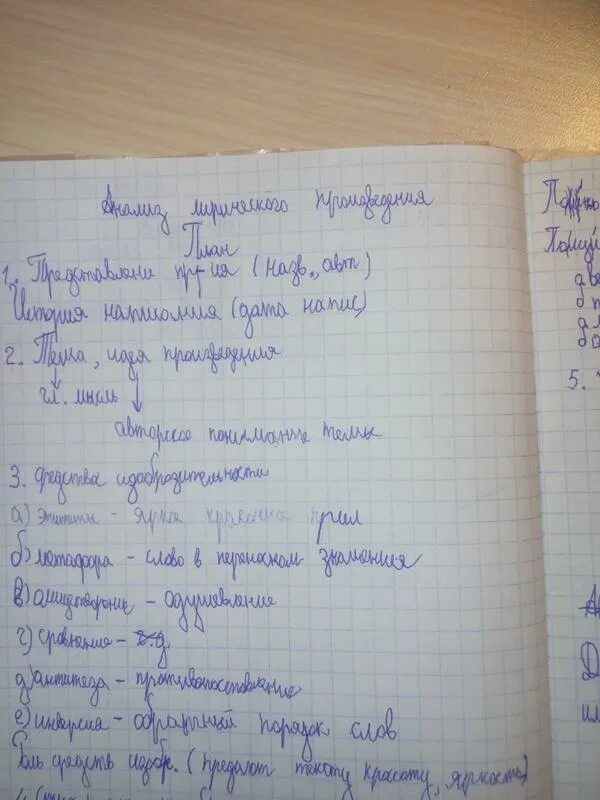 Анализ лирического произведения
План
1. Представлени пр-ия (назв., авт)
История написания (дата напис)
2. Тема, идея произведения
гл. мысль
авторское понимание темы
3. средства изобразительности
а) Эпитеты - яркое прил
б) метафора - слово в переносном значения
в) олицетворение - одушевление
г) сравнение -
д) антитеза - противопоставление
е) инверсия - обратный порядок слов
Роль средств изобр. (предают тексту красоту, яркость)
5.